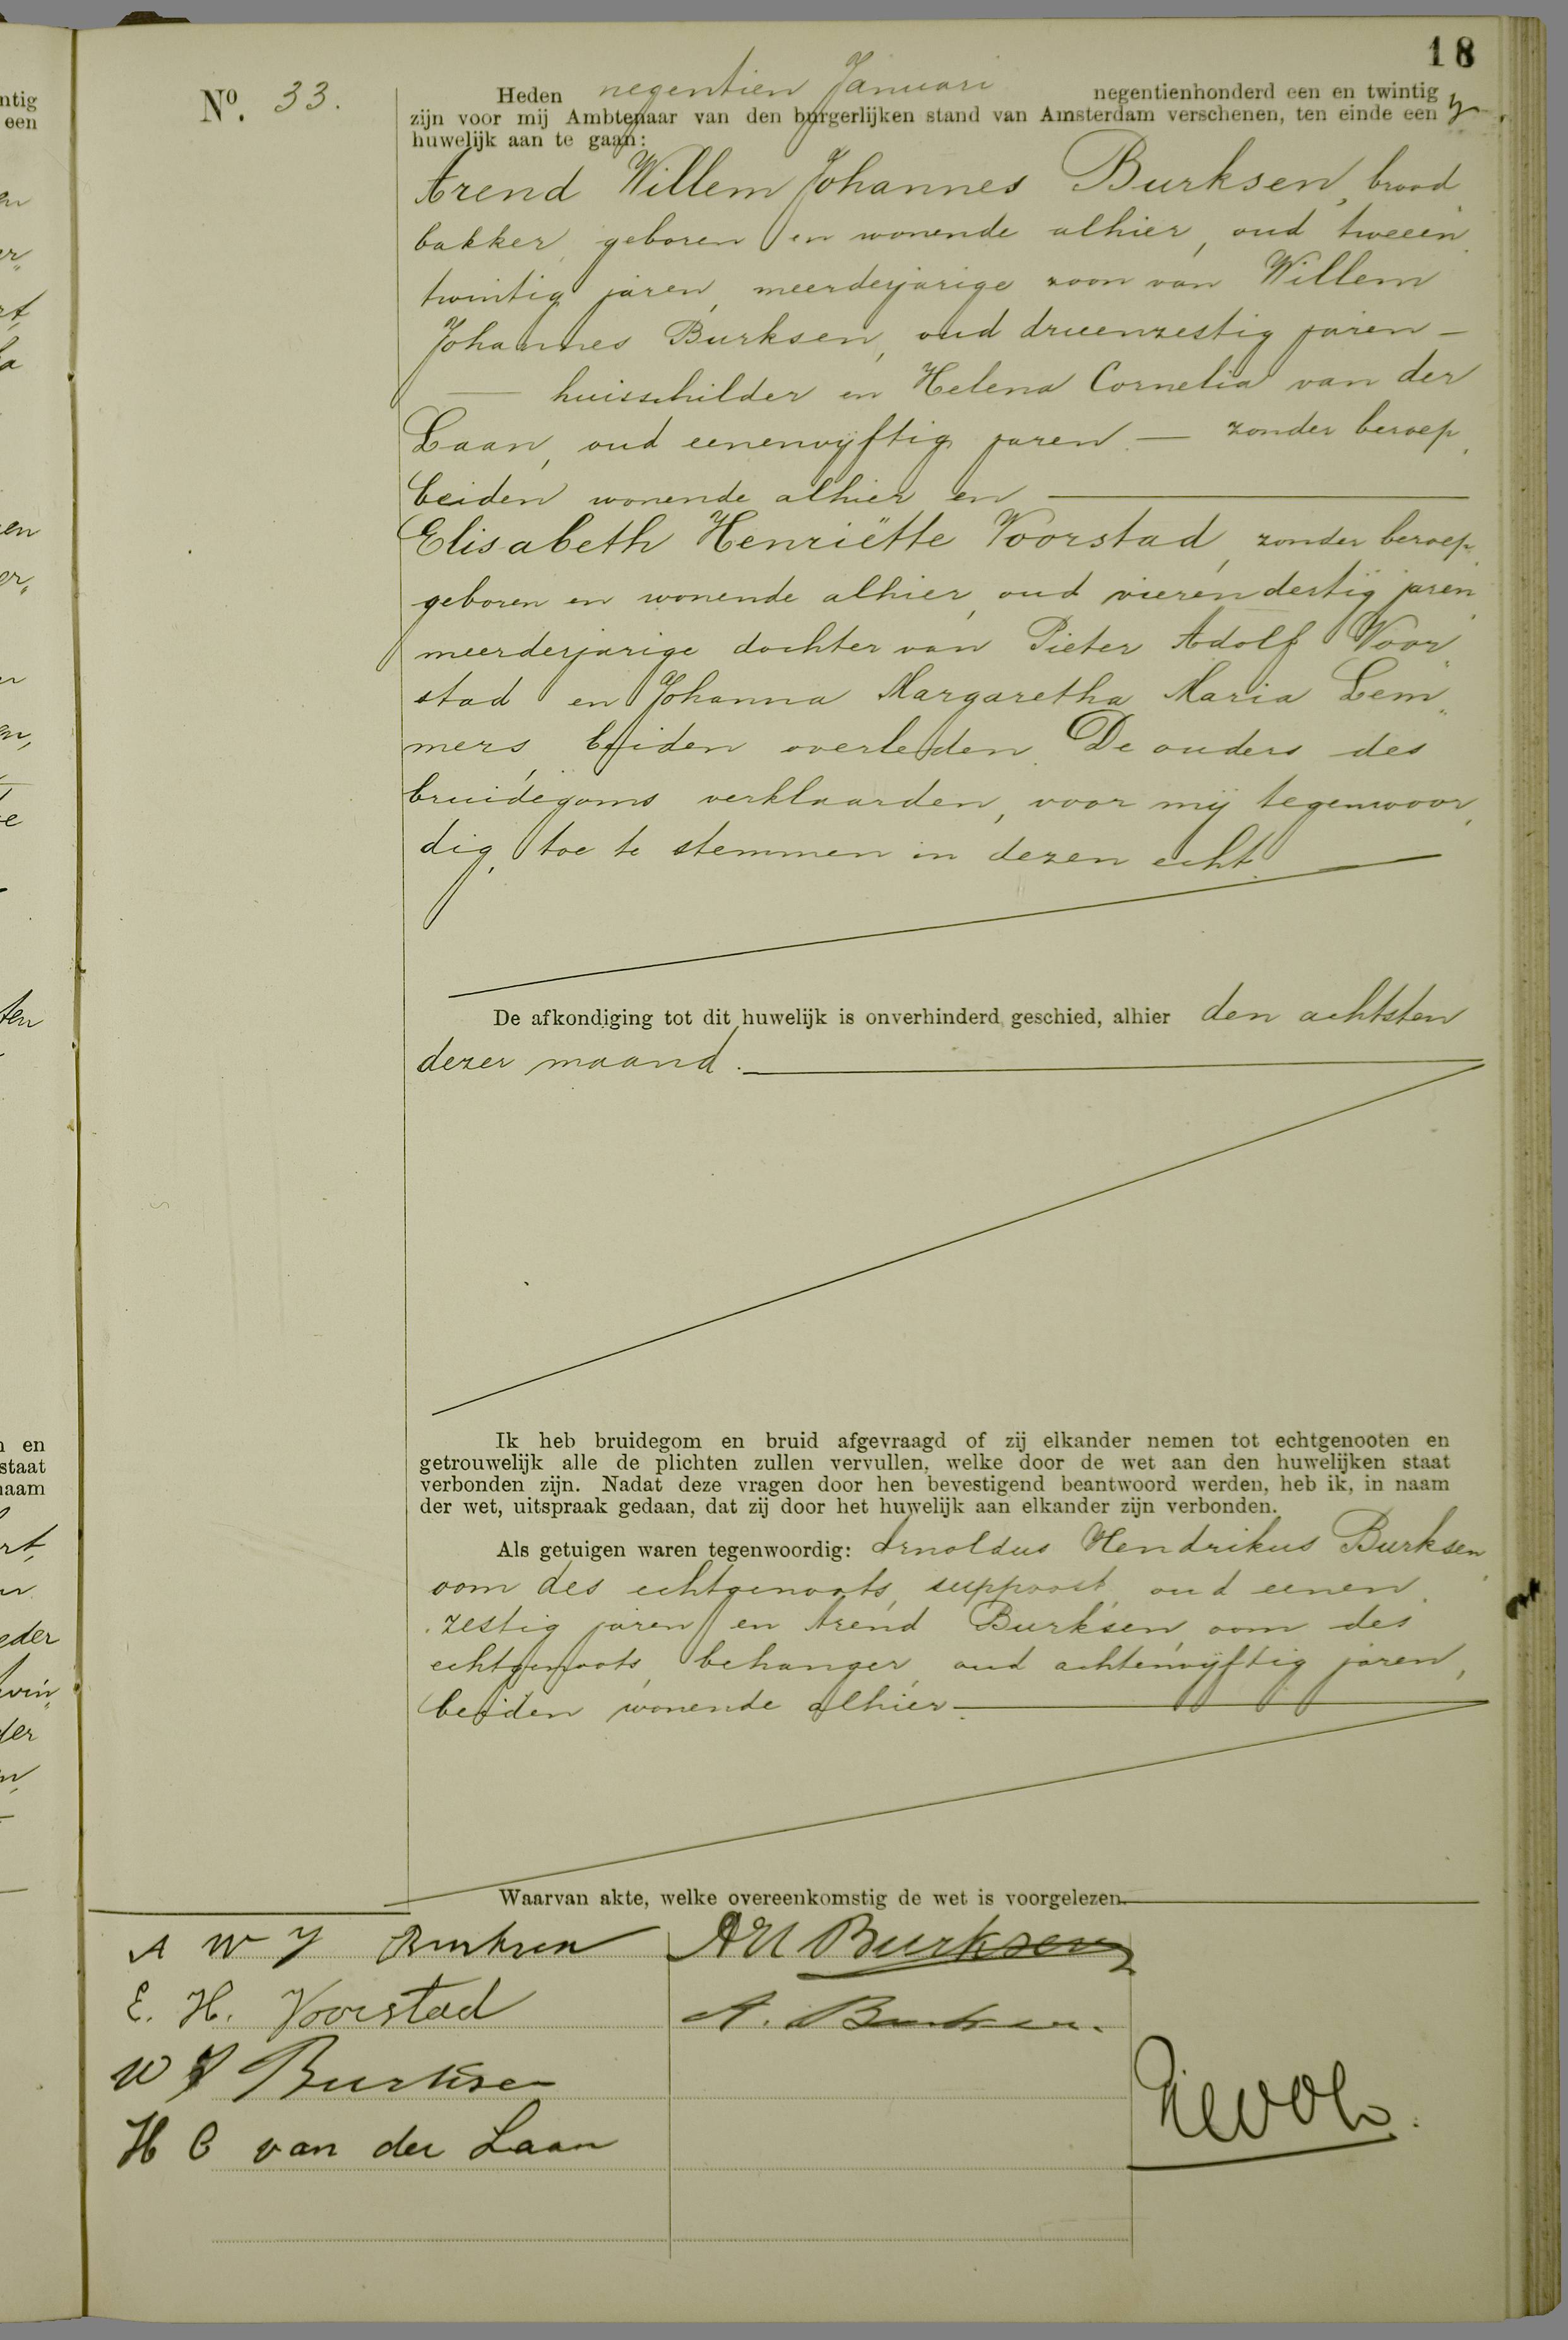 18
No. 33.
Heden negentien Januari negentienhonderd een en twintig
zijn voor mij Ambtenaar van den burgerlijken stand van Amsterdam verschenen, ten einde een
huwelijk aan te gaan:
Arend Willem Johannes Burksen, brood
bakker, geboren en wonende alhier, oud tweeën
twintig jaren, meerderjarige zoon van Willem
Johannes Burksen, oud drieenzestig jaren —
— huisschilder en Helena Cornelia van der
Laan, oud eenenvijftig jaren — zonder beroep,
beiden wonende alhier en —
Elisabeth Henriëtte Voorstad, zonder beroep,
geboren en wonende alhier, oud vierendertig jaren,
meerderjarige dochter van Pieter Adolf Voor„
stad en Johanna Margaretha Maria Lem„
mers, beiden overleden. De ouders des
bruidegoms verklaarden, voor mij tegenwoor„
dig, toe te stemmen in dezen echt. —
De afkondiging tot dit huwelijk is onverhinderd geschied, alhier den achtsten
dezer maand. —
Ik heb bruidegom en bruid afgevraagd of zij elkander nemen tot echtgenooten en
getrouwelijk alle de plichten zullen vervullen, welke door de wet aan den huwelijken staat
verbonden zijn. Nadat deze vragen door hen bevestigend beantwoord werden, heb ik, in naam
der wet, uitspraak gedaan, dat zij door het huwelijk aan elkander zijn verbonden.
Als getuigen waren tegenwoordig: Arnoldus Hendrikus Burksen,
oom des echtgenoots, suppoost, oud eenen
zestig jaren en Arend Burksen, oom des
echtgenoots, behanger, oud achtenvijftig jaren,
beiden wonende alhier. —
Waarvan akte, welke overeenkomstig de wet is voorgelezen.
A W J Burksen
AH Burksen
E. H. Voorstad
A. Burksen.
W J Burksen
H C van der Laan